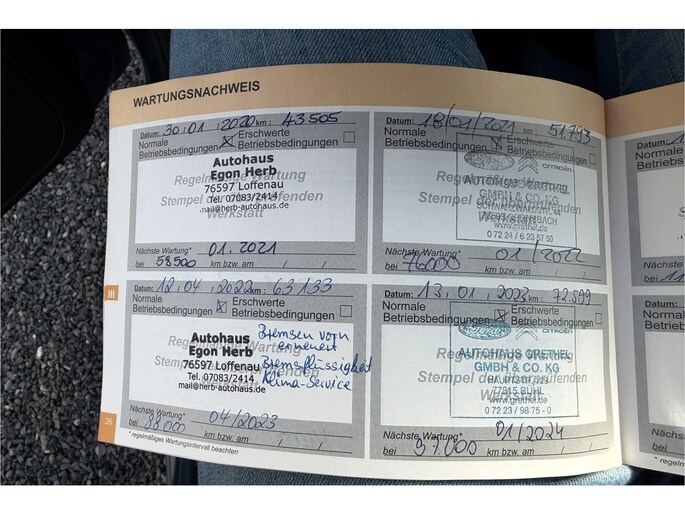 WARTUNGSNACHWEIS
Datum: 30.01.2020 km: 43505
Normale Betriebsbedingungen ☒ Erschwerte Betriebsbedingungen ☐
Autohaus
Egon Herb
Regelmäßige Wartung
76597 Loffenau
Stempel der ausführenden
Tel. 07083/2414
Werkstatt
mail@herb-autohaus.de
Nächste Wartung* 01.2021
bei 58500 km bzw. am
Datum: 18/01/2021 km: 51793
Normale Betriebsbedingungen ☒ Erschwerte Betriebsbedingungen ☐
CITROËN
Regelmäßige Wartung
AUTOHAUS GRETHEL
GMBH & CO. KG
Stempel der ausführenden
SCHWARZWALDSTR. 44
Werkstatt
www.grethel.de
0 72 24 / 6 23 57 50
Nächste Wartung* 01/2022
bei 76000 km bzw. am
III
Datum: 12.04.2022 km: 63133
Normale Betriebsbedingungen ☒ Erschwerte Betriebsbedingungen ☐
Autohaus
Egon Herb
Regelmäßige Wartung
76597 Loffenau
Stempel der ausführenden
Tel. 07083/2414
Werkstatt
mail@herb-autohaus.de
Bremsen vorn
erneuert
Bremsflüssigkeit
Klima-Service
Nächste Wartung* 04/2023
bei 88000 km bzw. am
* regelmäßiges Wartungsintervall beachten
26
Datum: 13.01.2023 km: 72599
Normale Betriebsbedingungen ☒ Erschwerte Betriebsbedingungen ☐
CITROËN
Regelmäßige Wartung
AUTOHAUS GRETHEL
GMBH & CO. KG
Stempel der ausführenden
77815 BÜHL
Werkstatt
www.grethel.de
0 72 23 / 98 75 - 0
Nächste Wartung* 01/2024
bei 97.000 km bzw. am